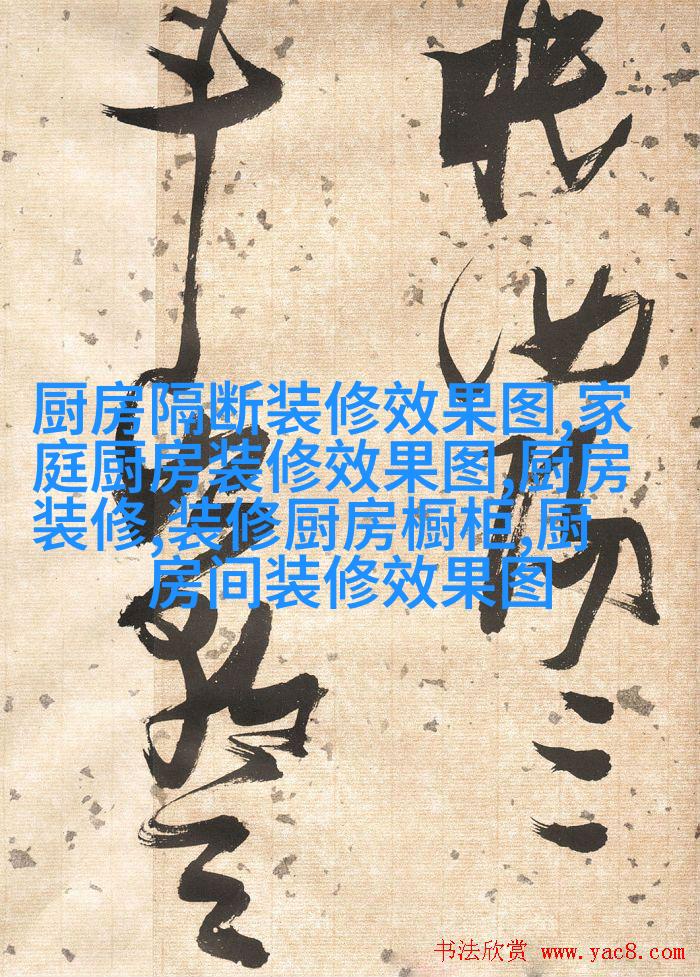 眠汝陽三
斗始朝天
厨房隔断装修效果图,家
庭厨房装修效果图,厨房
装修,装修厨房橱柜,厨
房间装修效果图
书法欣赏 www.yac8.com